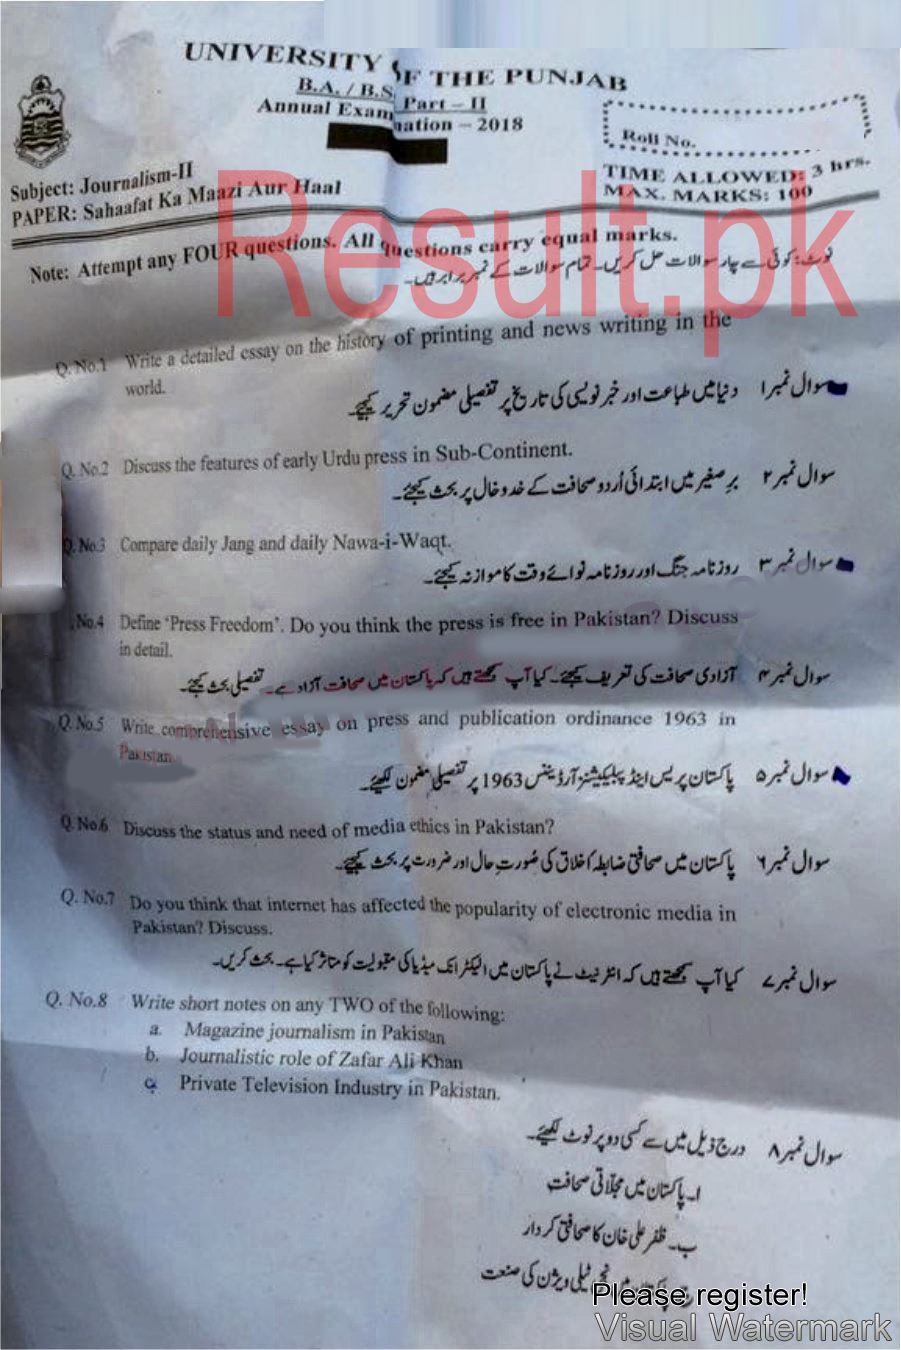 UNIVERSITY OF THE PUNJAB
B.A. / B.S Part – II
Annual Examination – 2018
Roll No.
Subject: Journalism-II
PAPER: Sahaafat Ka Maazi Aur Haal
TIME ALLOWED: 3 hrs.
MAX. MARKS: 100
Note: Attempt any FOUR questions. All questions carry equal marks.
نوٹ: کوئی سے چار سوالات حل کریں۔ تمام سوالات کے نمبر برابر ہیں۔
Result.pk
Q. No.1 Write a detailed essay on the history of printing and news writing in the
world.
سوال نمبر ۱ دنیا میں طباعت اور خبر نویسی کی تاریخ پر تفصیلی مضمون تحریر کیجئے۔
Q. No.2 Discuss the features of early Urdu press in Sub-Continent.
سوال نمبر ۲ برِ صغیر میں ابتدائی اُردو صحافت کے خدوخال پر بحث کیجئے۔
Q. No.3 Compare daily Jang and daily Nawa-i-Waqt.
سوال نمبر ۳ روزنامہ جنگ اور روزنامہ نوائے وقت کا موازنہ کیجئے۔
No.4 Define ‘Press Freedom’. Do you think the press is free in Pakistan? Discuss
in detail.
سوال نمبر ۴ آزادی صحافت کی تعریف کیجئے۔ کیا آپ سمجھتے ہیں کہ پاکستان میں صحافت آزاد ہے۔ تفصیلی بحث کیجئے۔
Q. No.5 Write comprehensive essay on press and publication ordinance 1963 in
Pakistan
سوال نمبر ۵ پاکستان پریس اینڈ پبلیکیشنز آرڈیننس 1963 پر تفصیلی مضمون لکھیئے۔
Q. No.6 Discuss the status and need of media ethics in Pakistan?
سوال نمبر ۶ پاکستان میں صحافتی ضابطہ اخلاق کی صُورتِ حال اور ضرورت پر بحث کیجئے۔
Q. No.7 Do you think that internet has affected the popularity of electronic media in
Pakistan? Discuss.
سوال نمبر ۷ کیا آپ سمجھتے ہیں کہ انٹرنیٹ نے پاکستان میں الیکٹرانک میڈیا کی مقبولیت کو متاثر کیا ہے۔ بحث کریں۔
Q. No.8 Write short notes on any TWO of the following:
a. Magazine journalism in Pakistan
b. Journalistic role of Zafar Ali Khan
c. Private Television Industry in Pakistan.
سوال نمبر ۸ درج ذیل میں سے کسی دو پر نوٹ لکھیئے۔
ا۔ پاکستان میں مجلّاتی صحافت
ب۔ ظفر علی خان کا صحافتی کردار
ٹیلی ویژن کی صنعت
Please register!
Visual Watermark